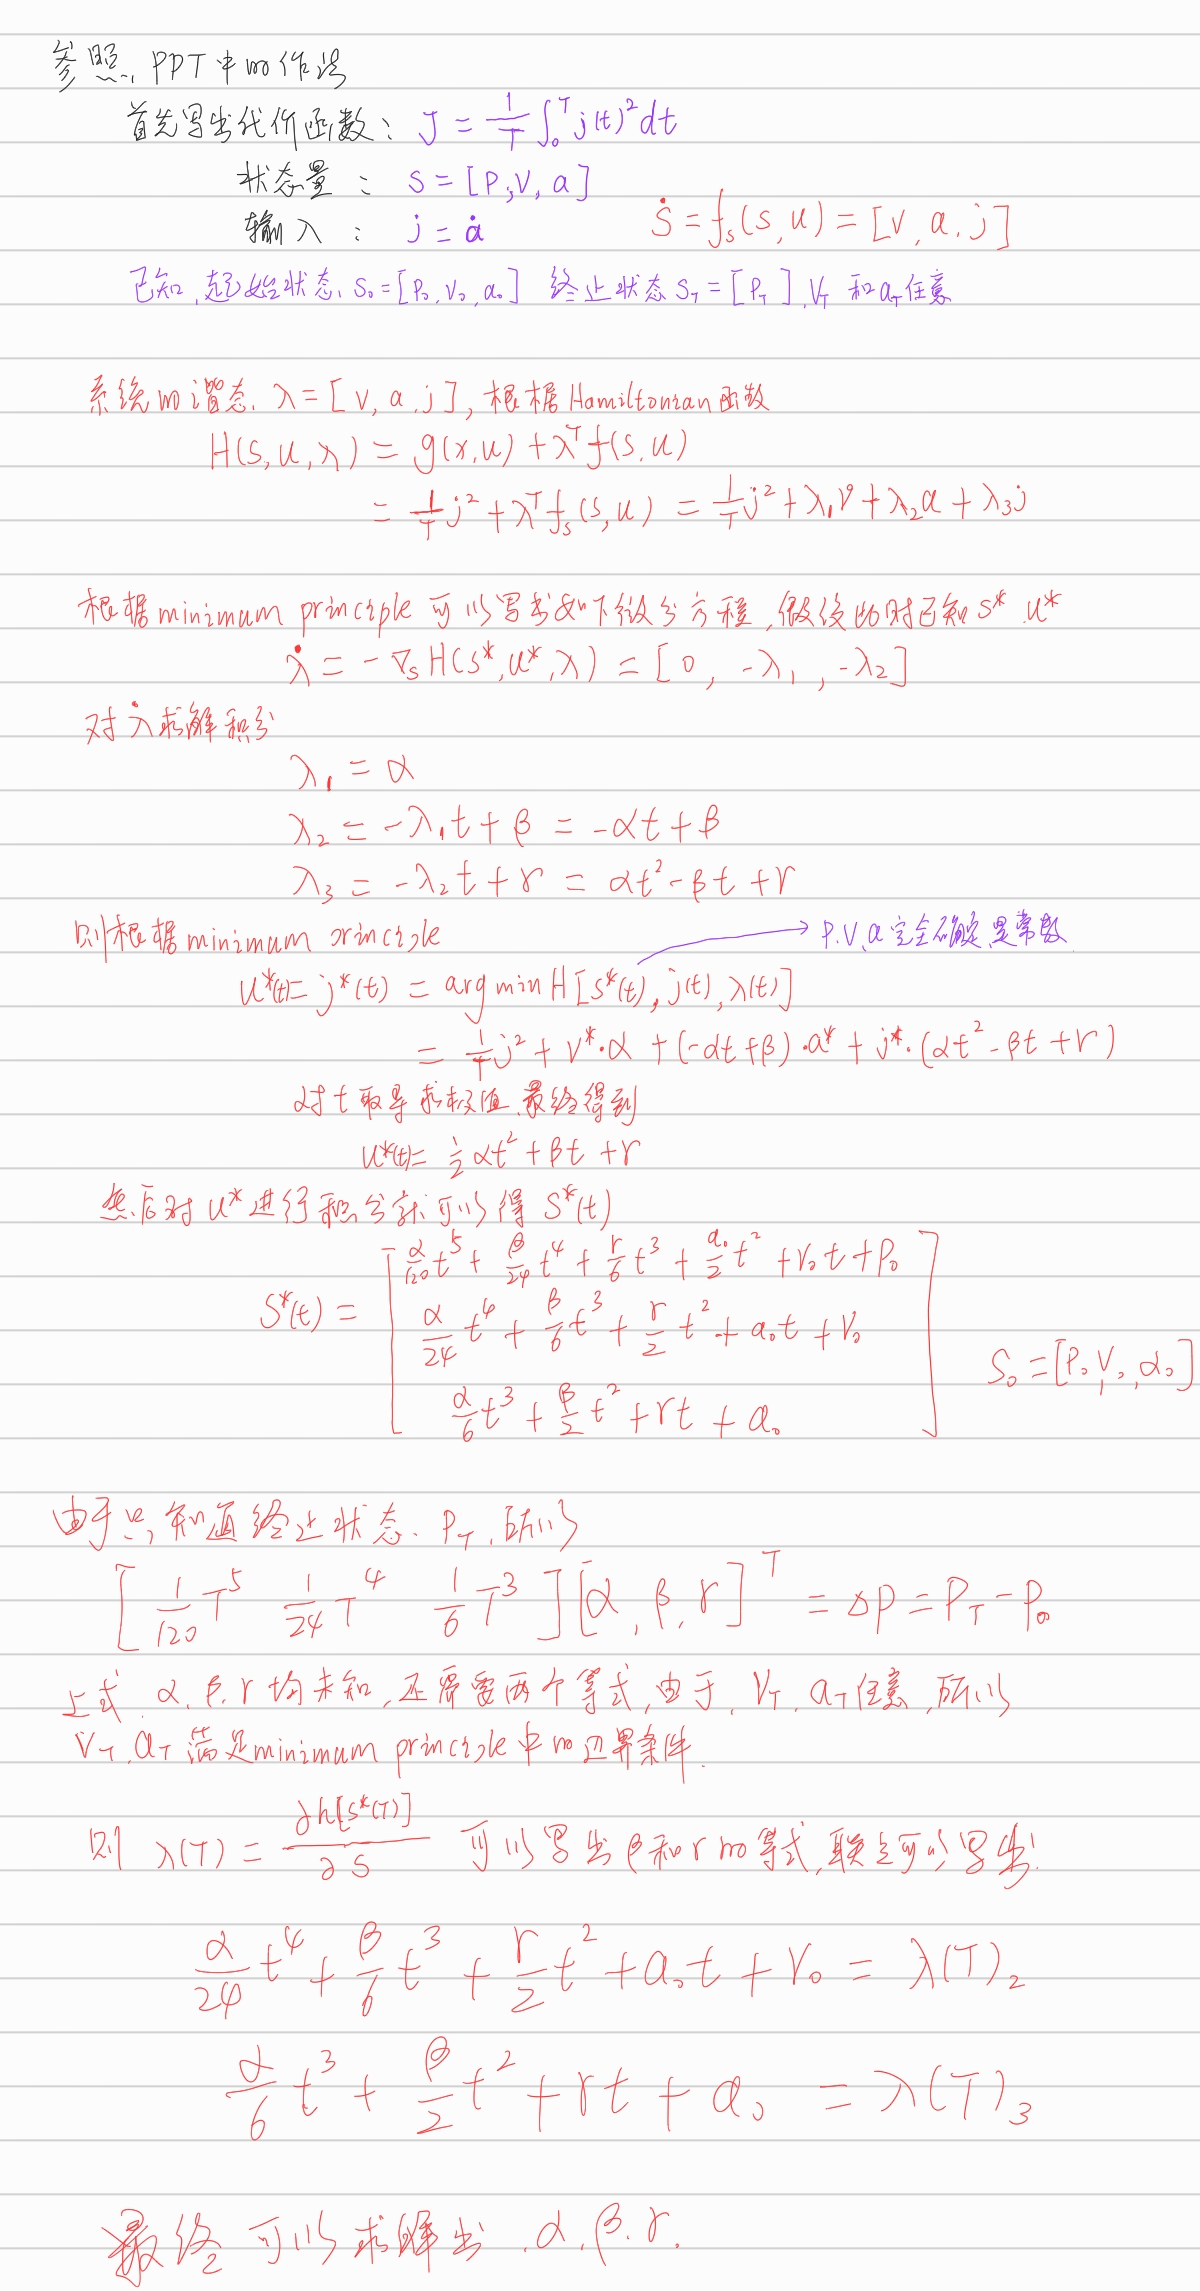 参照 PPT中的作法
首先写出代价函数: J = 1/T ∫₀ᵀ j(t)² dt
状态量 : S = [P, V, a]
输入 : j = ȧ Ṡ = fₛ(s, u) = [v, a, j]
已知, 起始状态 S₀=[P₀, V₀, a₀] 终止状态 S_T = [P_T], V_T 和 a_T 任意
系统的谐态, λ = [v, a, j], 根据 Hamiltonian 函数
H(S, u, λ) = g(x, u) + λᵀ f(s, u)
= 1/T j² + λᵀ fₛ(s, u) = 1/T j² + λ₁v + λ₂a + λ₃j
根据 minimum principle 可以写出如下微分方程, 假设此时已知 S* u*
λ̇ = -∇ₛ H(S*, u*, λ) = [0, -λ₁, -λ₂]
对 λ̇ 求解积分
λ₁ = α
λ₂ = -λ₁t + β = -αt + β
λ₃ = -λ₂t + r = αt² - βt + r
则根据 minimum principle
→ P, V, a 完全确定, 是常数
u*(t) = j*(t) = arg min H [S*(t), j(t), λ(t)]
= 1/T j² + V*·α + (-αt+β)·a* + j*·(αt² - βt + r)
对 t 取导 求极值, 最终得到
u*(t) = 1/2 αt² + βt + r
然后对 u* 进行积分就可以得 S*(t)
α/120 t⁵ + β/24 t⁴ + r/6 t³ + a₀/2 t² + V₀t + P₀
S*(t) = [ α/24 t⁴ + β/6 t³ + r/2 t² + a₀t + V₀ ]
S₀ = [P₀, V₀, α₀]
α/6 t³ + β/2 t² + rt + a₀
由于只知道终止状态, P_T, 所以
[1/120 T⁵ 1/24 T⁴ 1/6 T³] [α, β, r]ᵀ = ΔP = P_T - P₀
上式, α, β, r 均未知, 还需要两个等式, 由于, V_T, a_T 任意, 所以
V_T, a_T 满足 minimum principle 中的边界条件.
则 λ(T) = ∂h[S*(T)] / ∂S 可以写出 β 和 r 的等式, 联立可以写出
α/24 t⁴ + β/6 t³ + r/2 t² + a₀t + V₀ = λ(T)₂
α/6 t³ + β/2 t² + rt + a₀ = λ(T)₃
最终可以求解出 α, β, r.